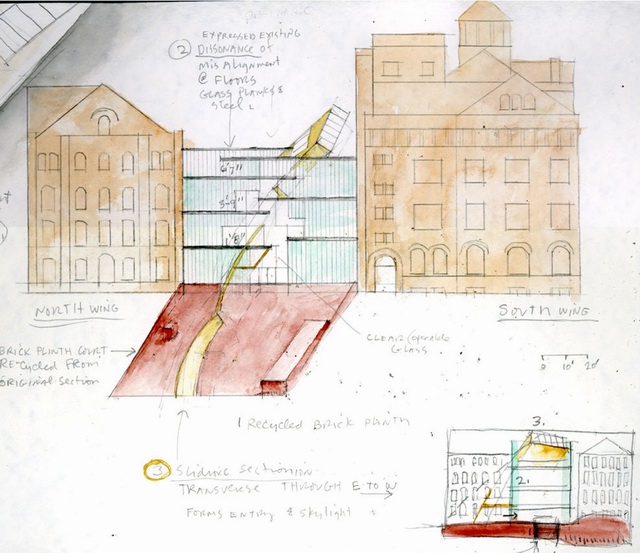 EXPRESSED EXISTING
2 DISSONANCE of
MisAlignment
@ FLOORS
GLASS PLANKS &
Steel
6'7"
3'-9"
NORTH WING
SOUTH WING
CLEAR
GLASS
BRICK PLINTH COURT
RE-CYCLED FROM
ORIGINAL SECTION
0 10' 20'
1 Recycled BRICK PLINTH
3.
2.
3 Seismic section
TRANSVERSE THROUGH E TO W
FORMS ENTRY & Skylight